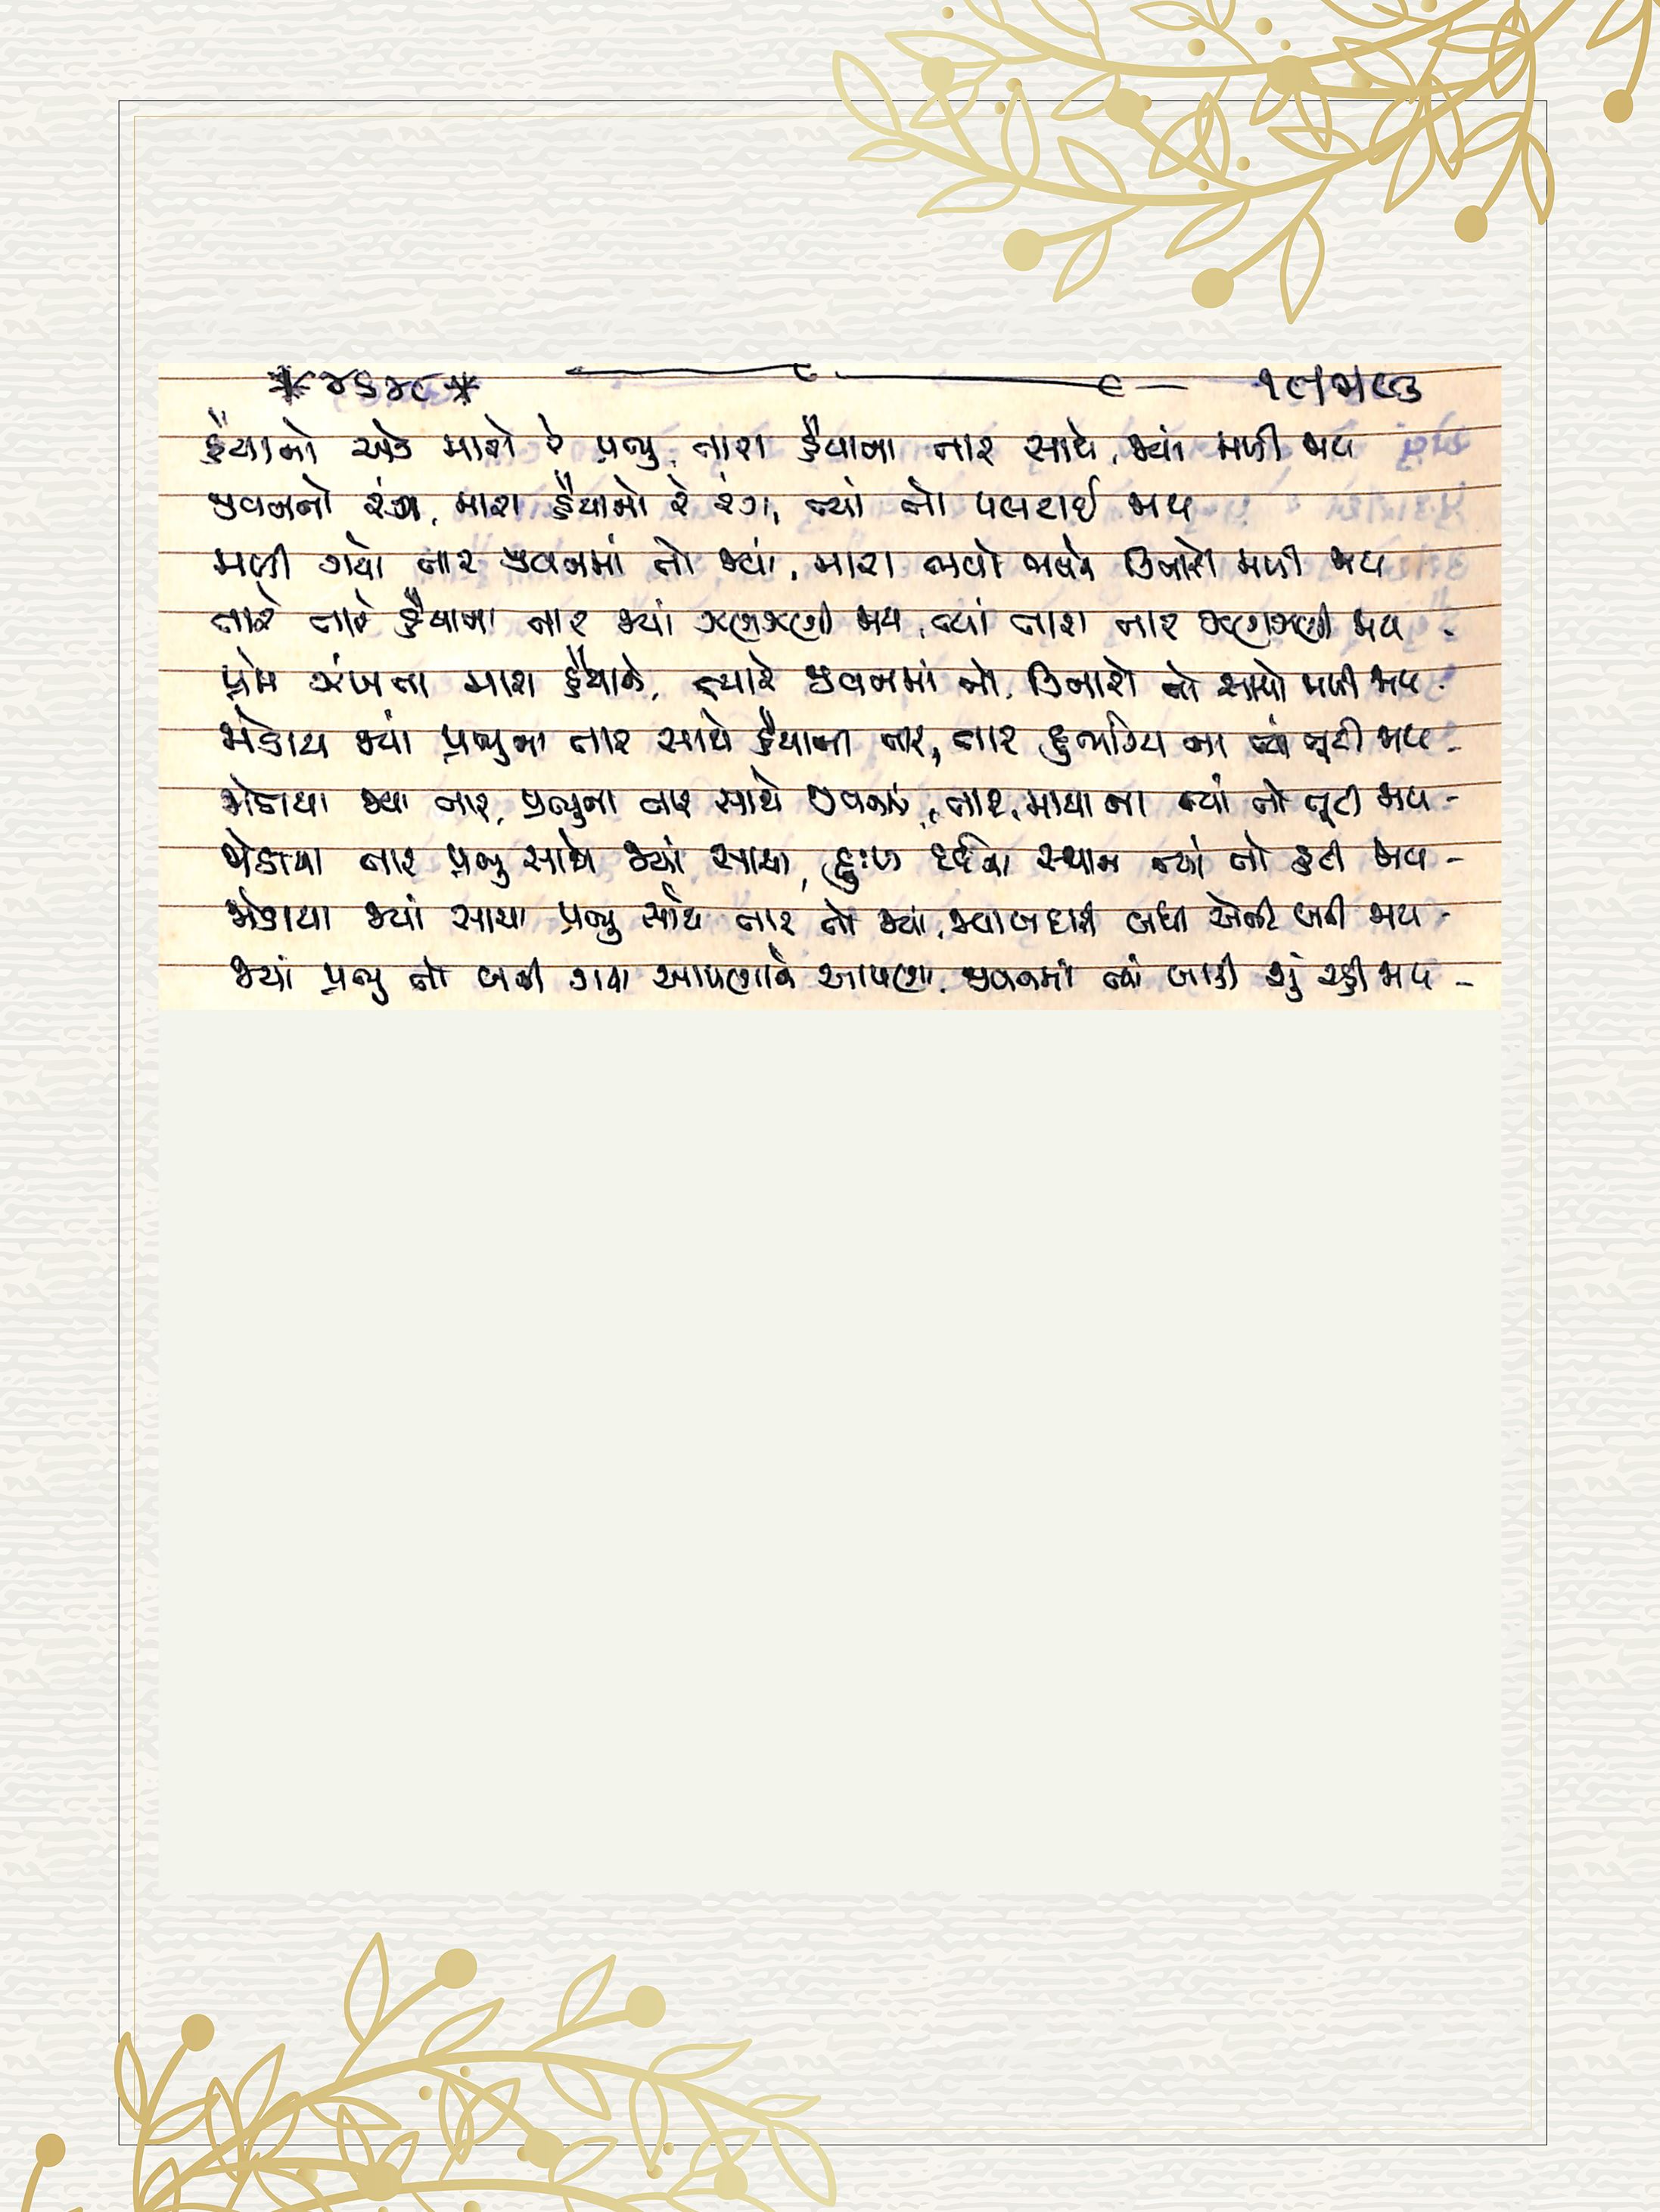 *૪૬૪૮* ૧૮/૫/૯૩
હૈયાનો એક મારો રે પ્રભુ, તારા હૈયાના તાર સાથે, જ્યાં મળી જાય
જીવનનો રંગ, મારા હૈયાનો રે રંગ, ત્યાં તો પલટાઈ જાય
મળી ગયો તાર જીવનમાં તો જ્યાં, મારા ભવો ભવને કિનારો મળી જાય
તારે તારે હૈયાના તાર જ્યાં ઝણઝણી જાય, ત્યાં તારા તાર ઝણઝણી જાય
પ્રેમ ઝંખતા મારા હૈયાને, ત્યારે જીવનમાં તો, કિનારો તો સાચો મળી જાય
જોડાય જ્યાં પ્રભુના તાર સાથે હૈયાના તાર, તાર દુર્ભાગ્ય ના ત્યાં તૂટી જાય -
જોડાયા જ્યાં તાર, પ્રભુના તાર સાથે જીવનના, તાર, માયા ના ત્યાં તો તૂટી જાય -
જોડાયા તાર પ્રભુ સાથે જ્યાં સાચા, દુઃખ દર્દના સ્થાન ત્યાં તો હટી જાય -
જોડાયા જ્યાં સાચા પ્રભુ સાથે તાર તો જ્યાં, જવાબદારી બધી એની બની જાય -
જ્યાં પ્રભુ તો બની ગયા આપણાને આપણા, જીવનમાં ત્યાં બાકી શું રહી જાય -